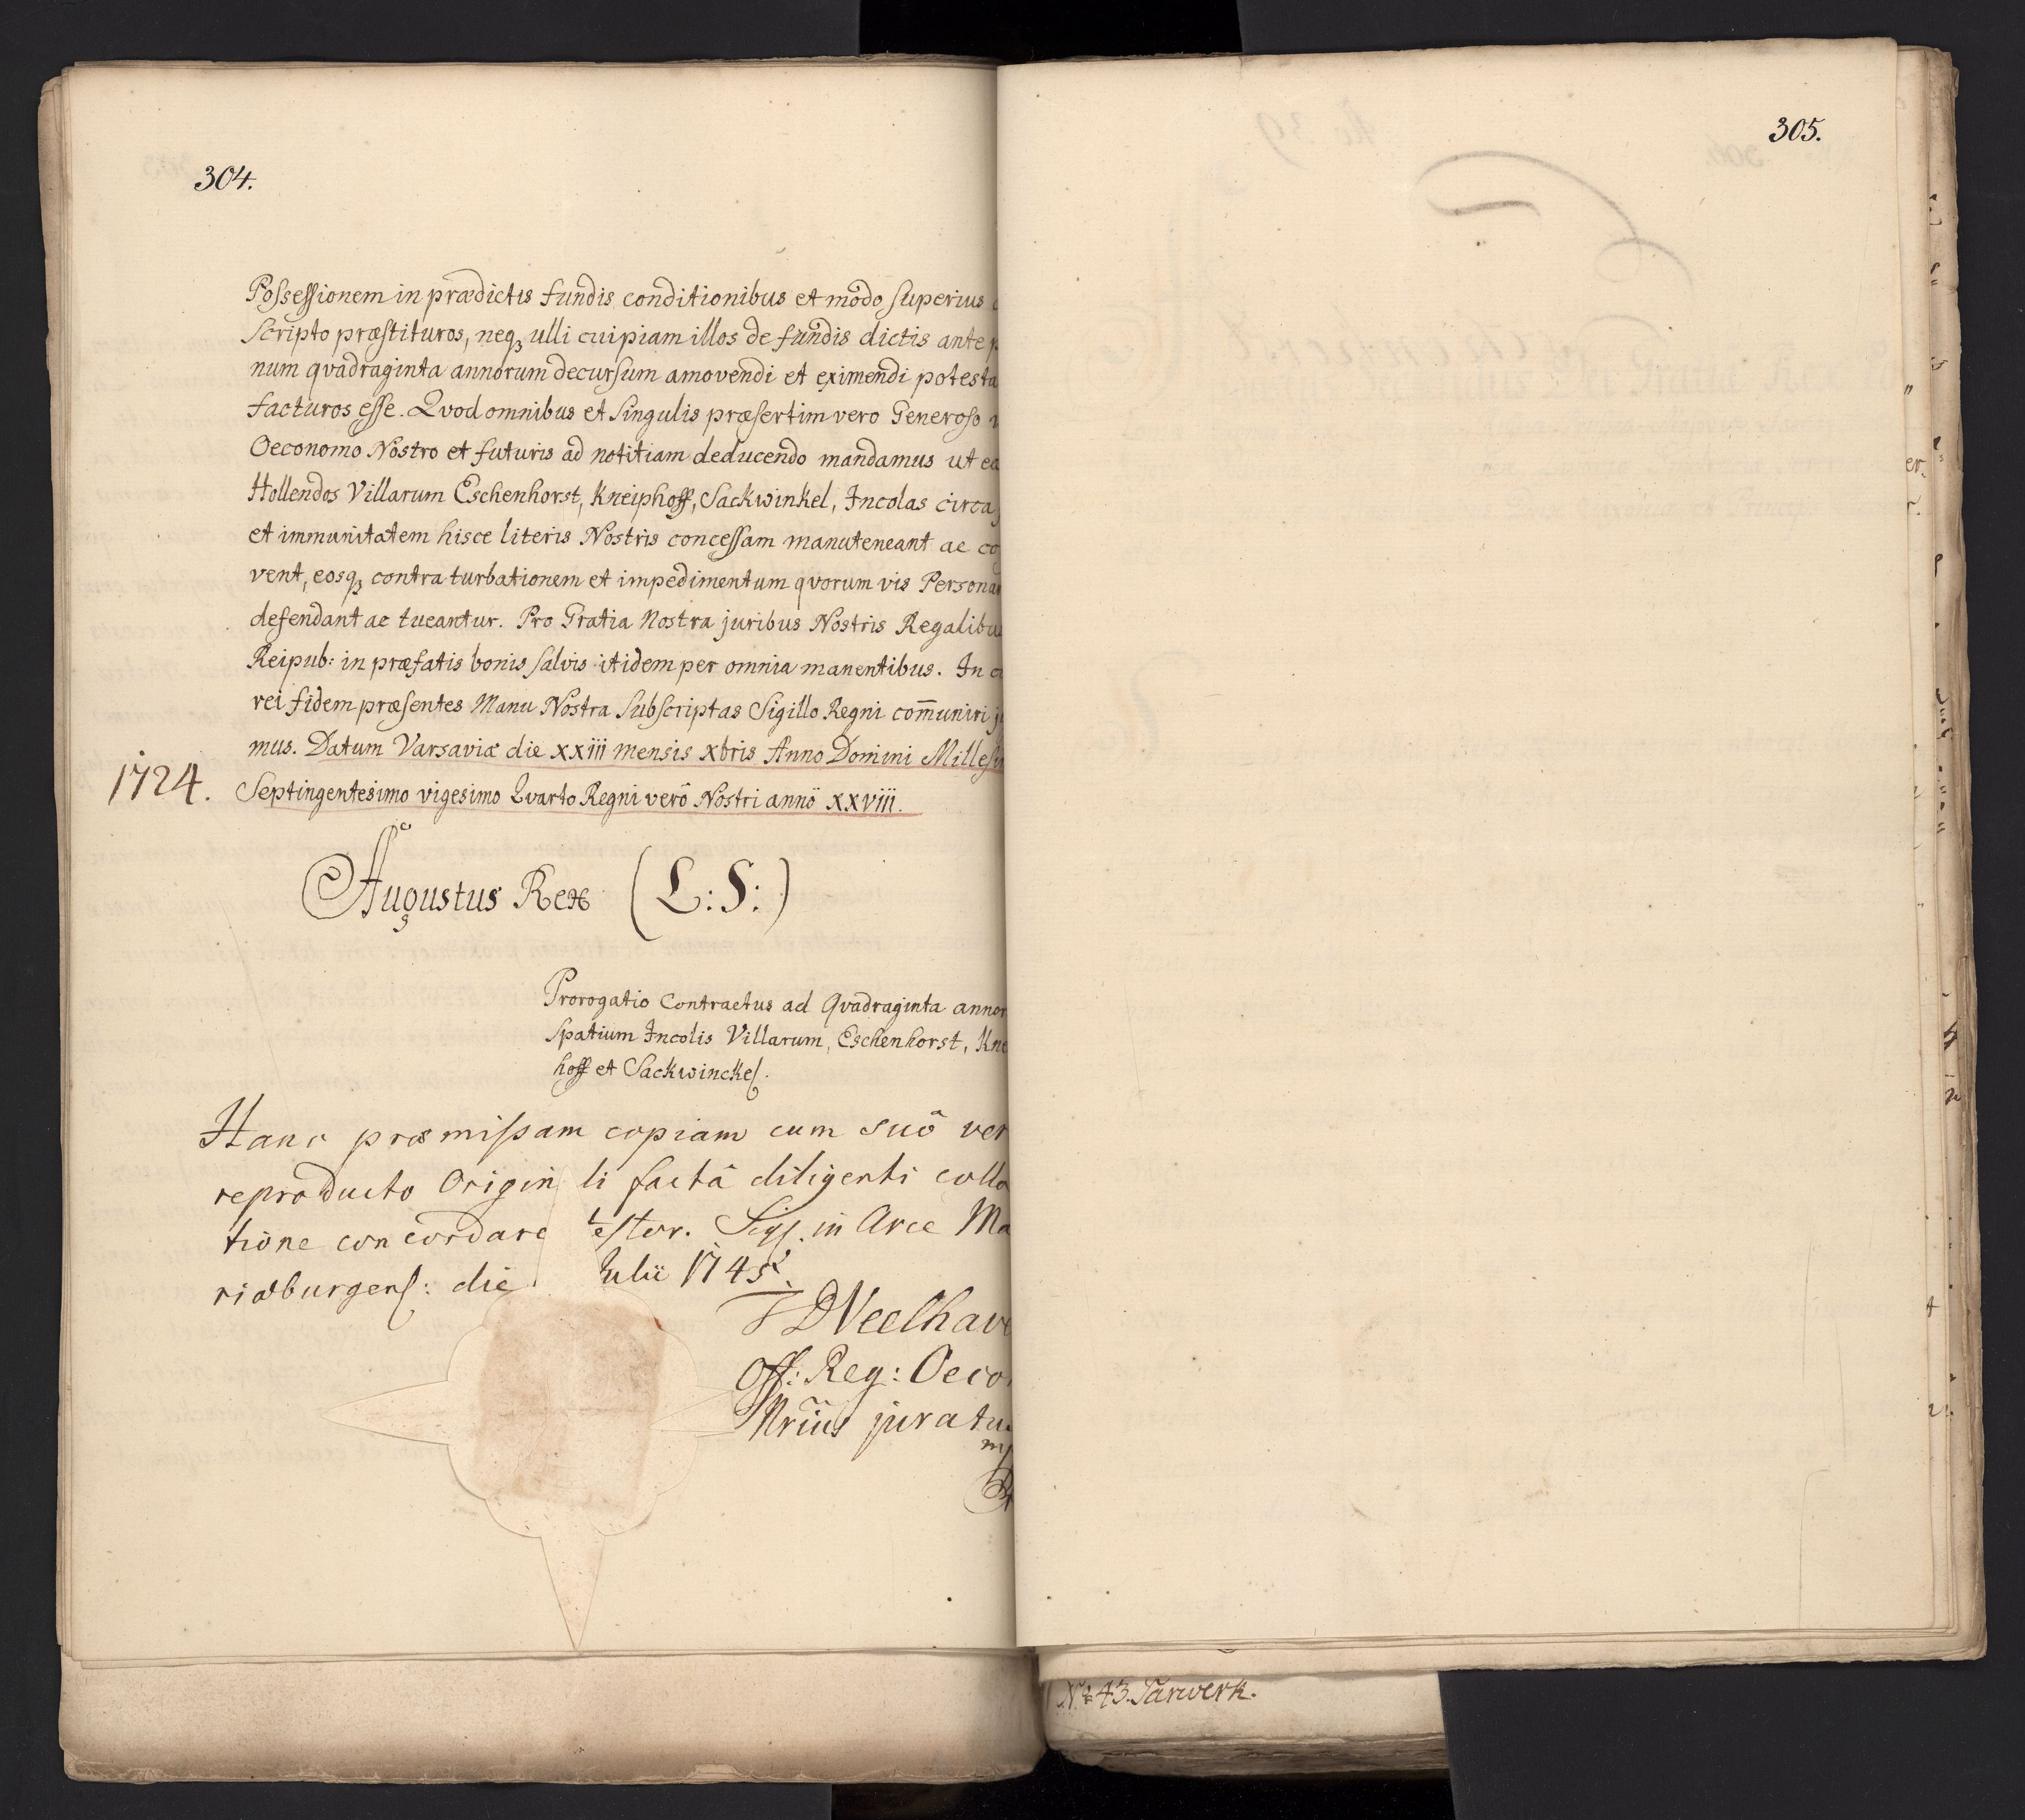 304.
Possessionem in prædictis fundis conditionibus et modo superius
scripto præstituros, neqꝫ ulli cuipiam illos de fundis dictis ante
num qvadraginta annorum decursum amovendi et eximendi potesta
facturos esse. Qvod omnibus et singulis præsertim vero Generoso
Oeconomo Nostro et futuris ad notitiam deducendo mandamus ut ea
Hollendos Villarum Eschenhorst, Kneiphoff, Sackwinkel, Incolas circa
et immunitatem hisce literis Nostris concessam manuteneant ac co
vent, eosqꝫ contra turbationem et impedimentum qvorum vis Persona
defendant ac tueantur. Pro Gratia Nostra juribus Nostris Regalibus
Reipub: in præfatis bonis salvis itidem per omnia manentibus. In
rei fidem præsentes Manu Nostra Subscriptas Sigillo Regni com̄uniri
mus. Datum Varsaviæ die xxiii mensis xbris Anno Domini Millesi
1724. Septingentesimo vigesimo Qvarto Regni verô Nostri annô xxviii.
Augustus Rex (L:S:)
Prorogatio Contractus ad Qvadraginta annor
Spatium Incolis Villarum, Eschenhorst, Kne
hoff et Sackwinckel.
Hanc præmissam copiam cum suô ver
reproducto Origin li factâ diligenti colla
tione concordare testor. Sigs. in Arce Ma
riæburgens: die Julii 1745
DVeelhav
Off: Reg: Oeco
Nrius juratu
305.
No 43. Tarwerk.